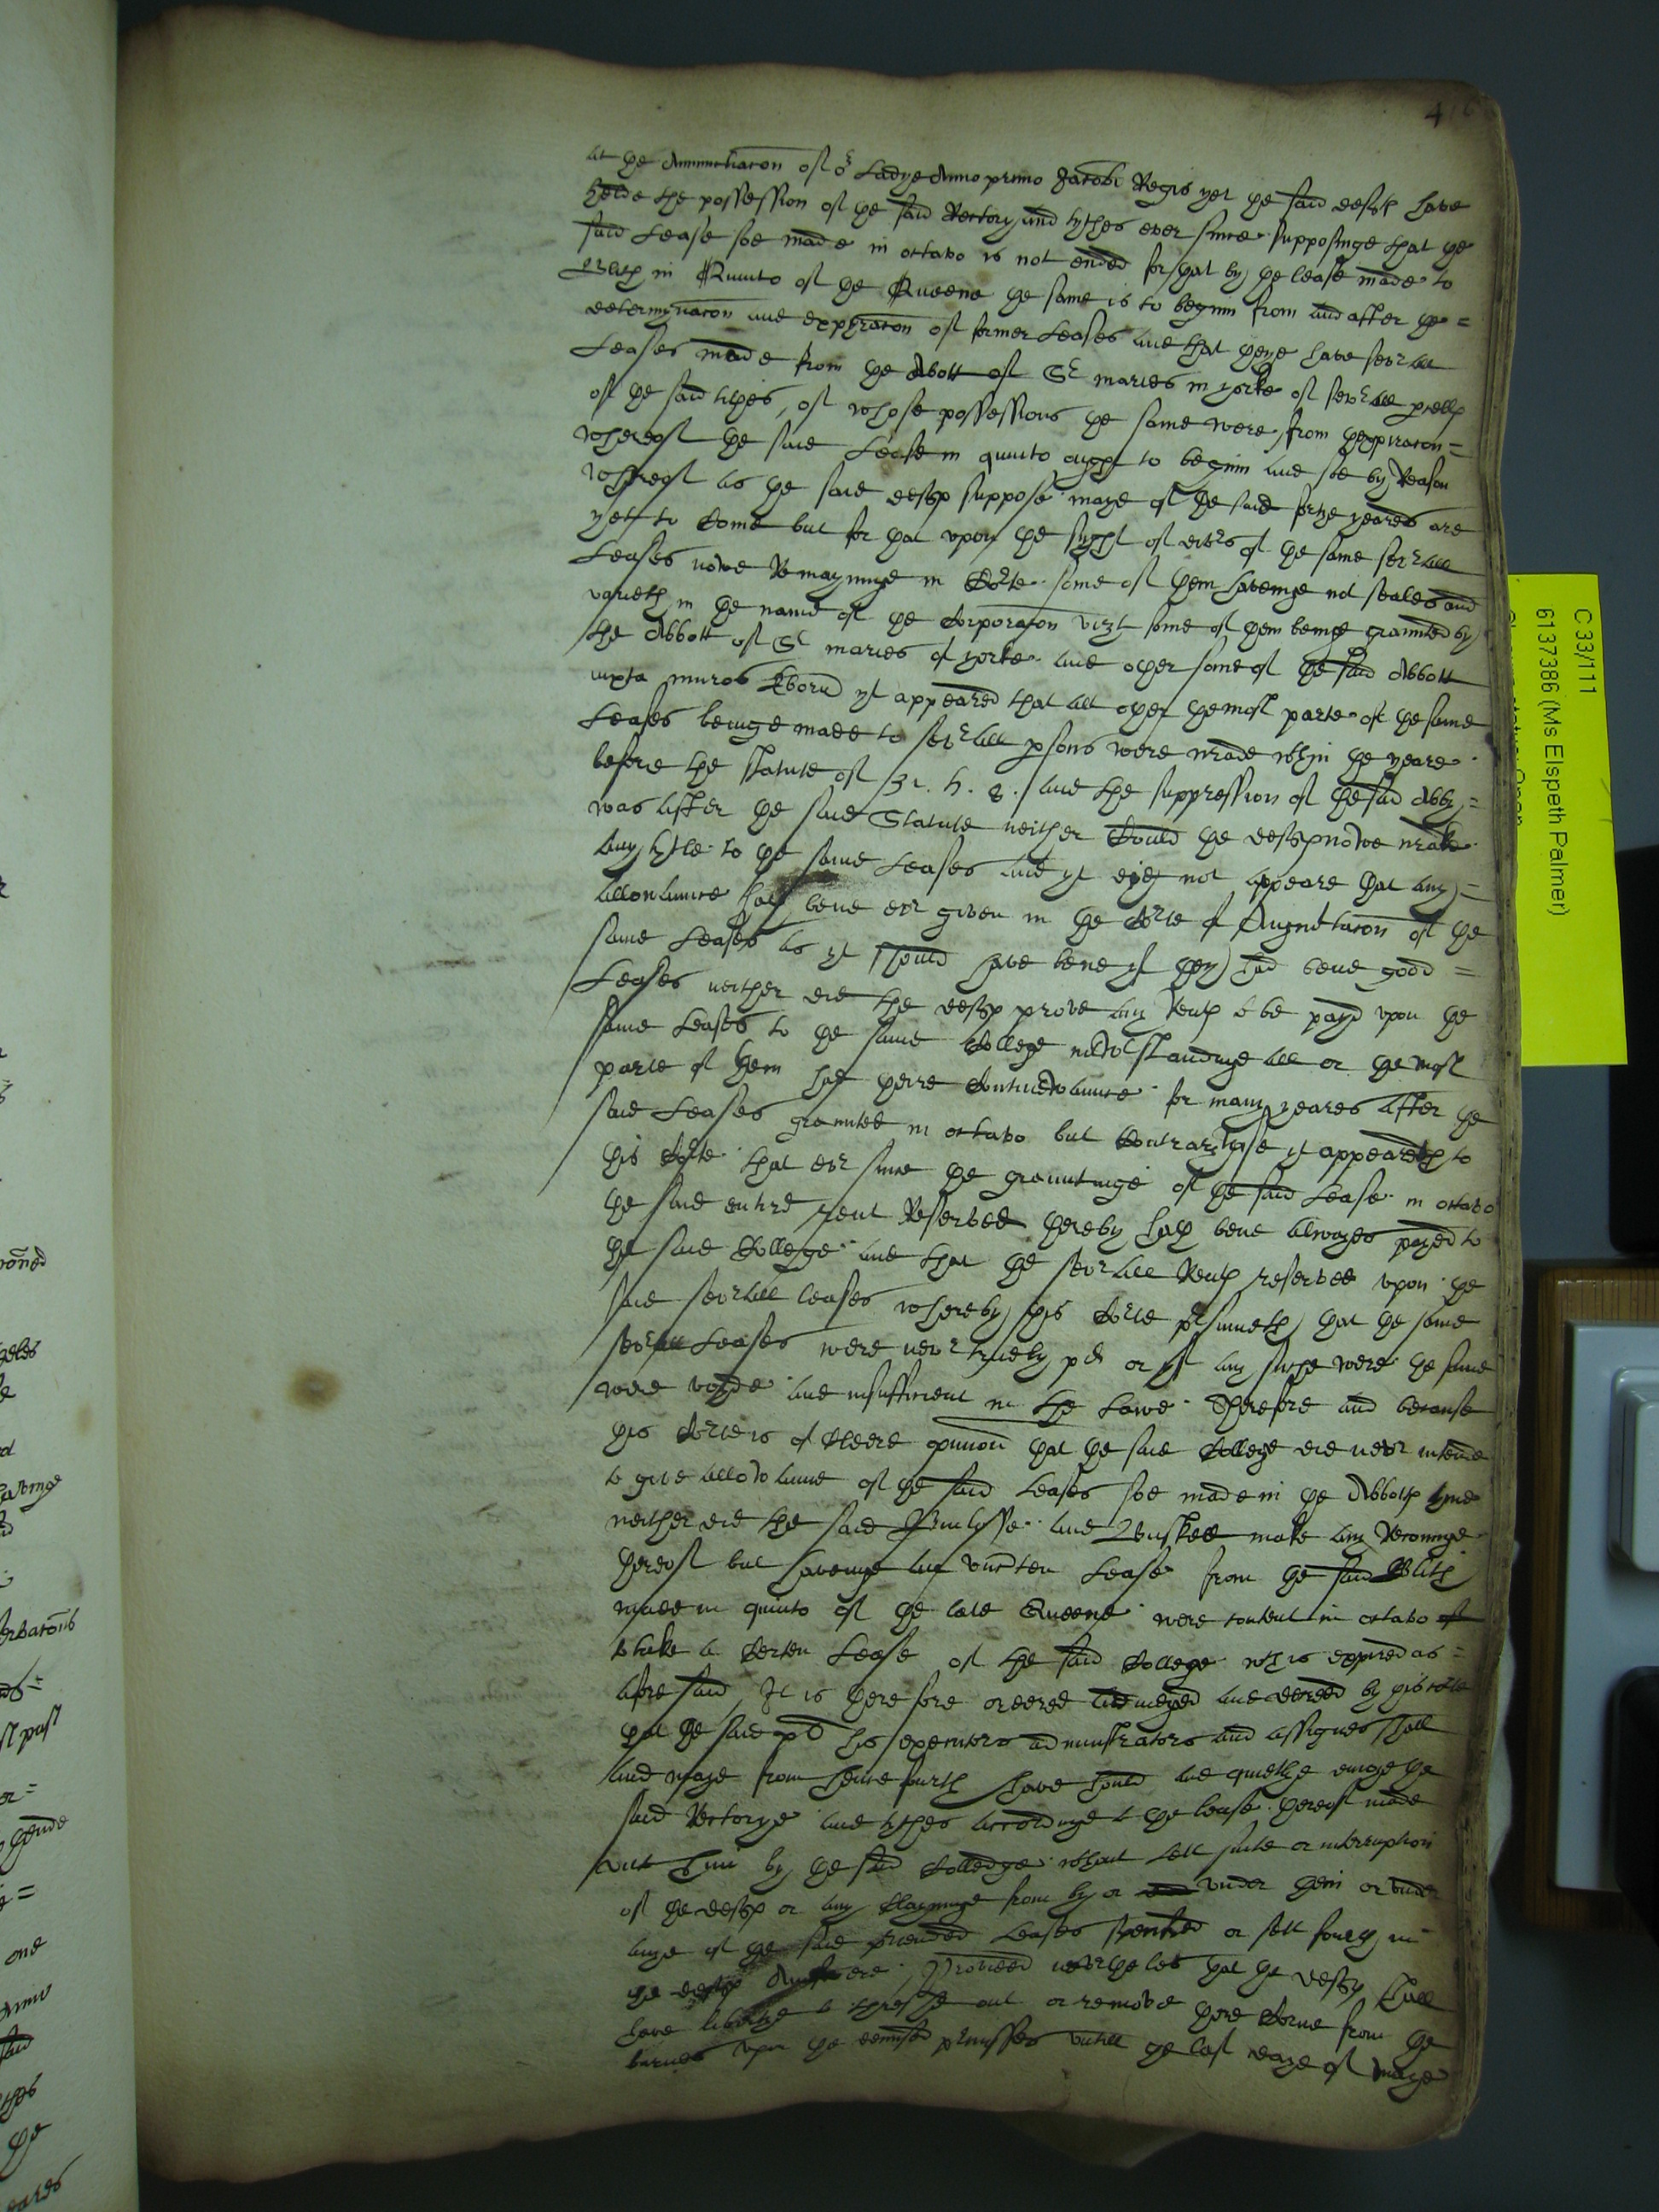 416
at the Annunciacon of or Ladye Anno primo Jacobi Regis yet the said deftes have
helde the possession of the said Rectory and tythes ever since supposinge that the
said Lease soe made in octavo is not ended for that by the lease made to
Blith in Quinto of the Queene the same is to beginn from and after the =
determynacon and expiracon of former Leases and that there have sevrall
Leases made from the Abott of St maries in yorke of sevrall pcells
of the said tithes, of whose possessions the same were, from thexpiracon =
whereof the said Lease in quinto ought to beginn and soe by Reason
whereof as the said deftes suppose manye of the said fortye yeares are
yett to Come but for that vpon the sight of divrs of the same sevrall
Leases nowe Remayninge in Corte some of them haveinge not seales and
varieth in the name of the Corporacon vizt some of them beinge graunted by
the Abbott of St maries of yorke and other some of the said Abbott
iuxta muros Eborn yt appeared that all or the most parte of the same
Leases beinge made to sevrall psons were made wthin the yeare
before the statute of 31. H. 8. and the suppression of the said Abby =
was after the said Statute neither Could the deftes nowe make
any tytle to the same Leases and yt did not appeare that any =
allowance hath bene evr given in the Corte of Augmentacon of the
same Leases as yt should have bene yf they had bene good =
Leases neither did the deftes prove any Rentes to be payd vpon the
same Leases to the same Colledge notwthstandinge all or the most
parte of them had there Contynewance for many yeares after the
said Leases graunted in octavo but Contrarywise yt appeareth to
this Corte that evr since the grauntinge of the said Lease in octavo
the said entire rent Reserved thereby hath bene alwayes payed to
the said Colledge and that the sevrall Rentes reserved vpon the
said sevrall leases whereby this Corte prsumeth that the same
sevrall Leases were nevr truely pd or yf any suche were the same
were voyde and insufficient in the Lawe. Therefore and because
this Corte is of Cleere opinion that the said Colledge did nevr intend
to give allowance of the said Leases soe made in the Abbotts tyme
neither did the said and make any Reconinge
thereof but haveinge an vndten Lease from the said Blith
made in quinto of the late Queene were content in octavo of
to take a Certen Lease of the said Colledge wch is expired as =
aforesaid, It is therefore ordered adiudged and decreed by this Corte
that the said plt his executors administrators and assignes shall
and maye from hencefourth have hould and quietlye enioye the
said Rectorye and tythes accordinge to the lease thereof made
vnto him by the said Colledge wthout lett suite or interruption
of the deftes or any Clayminge from by or vnder them or vnder
anye of the said prtended Leases or sett fourth in
the deftes Answere. Provided nevrtheles that the deftes shall
have libertye to threshe out or remove there Corne from the
barnes vpon the demised prmisses vntill the last daye of maye
C 33/111
6137386 (Ms Elspeth Palmer)